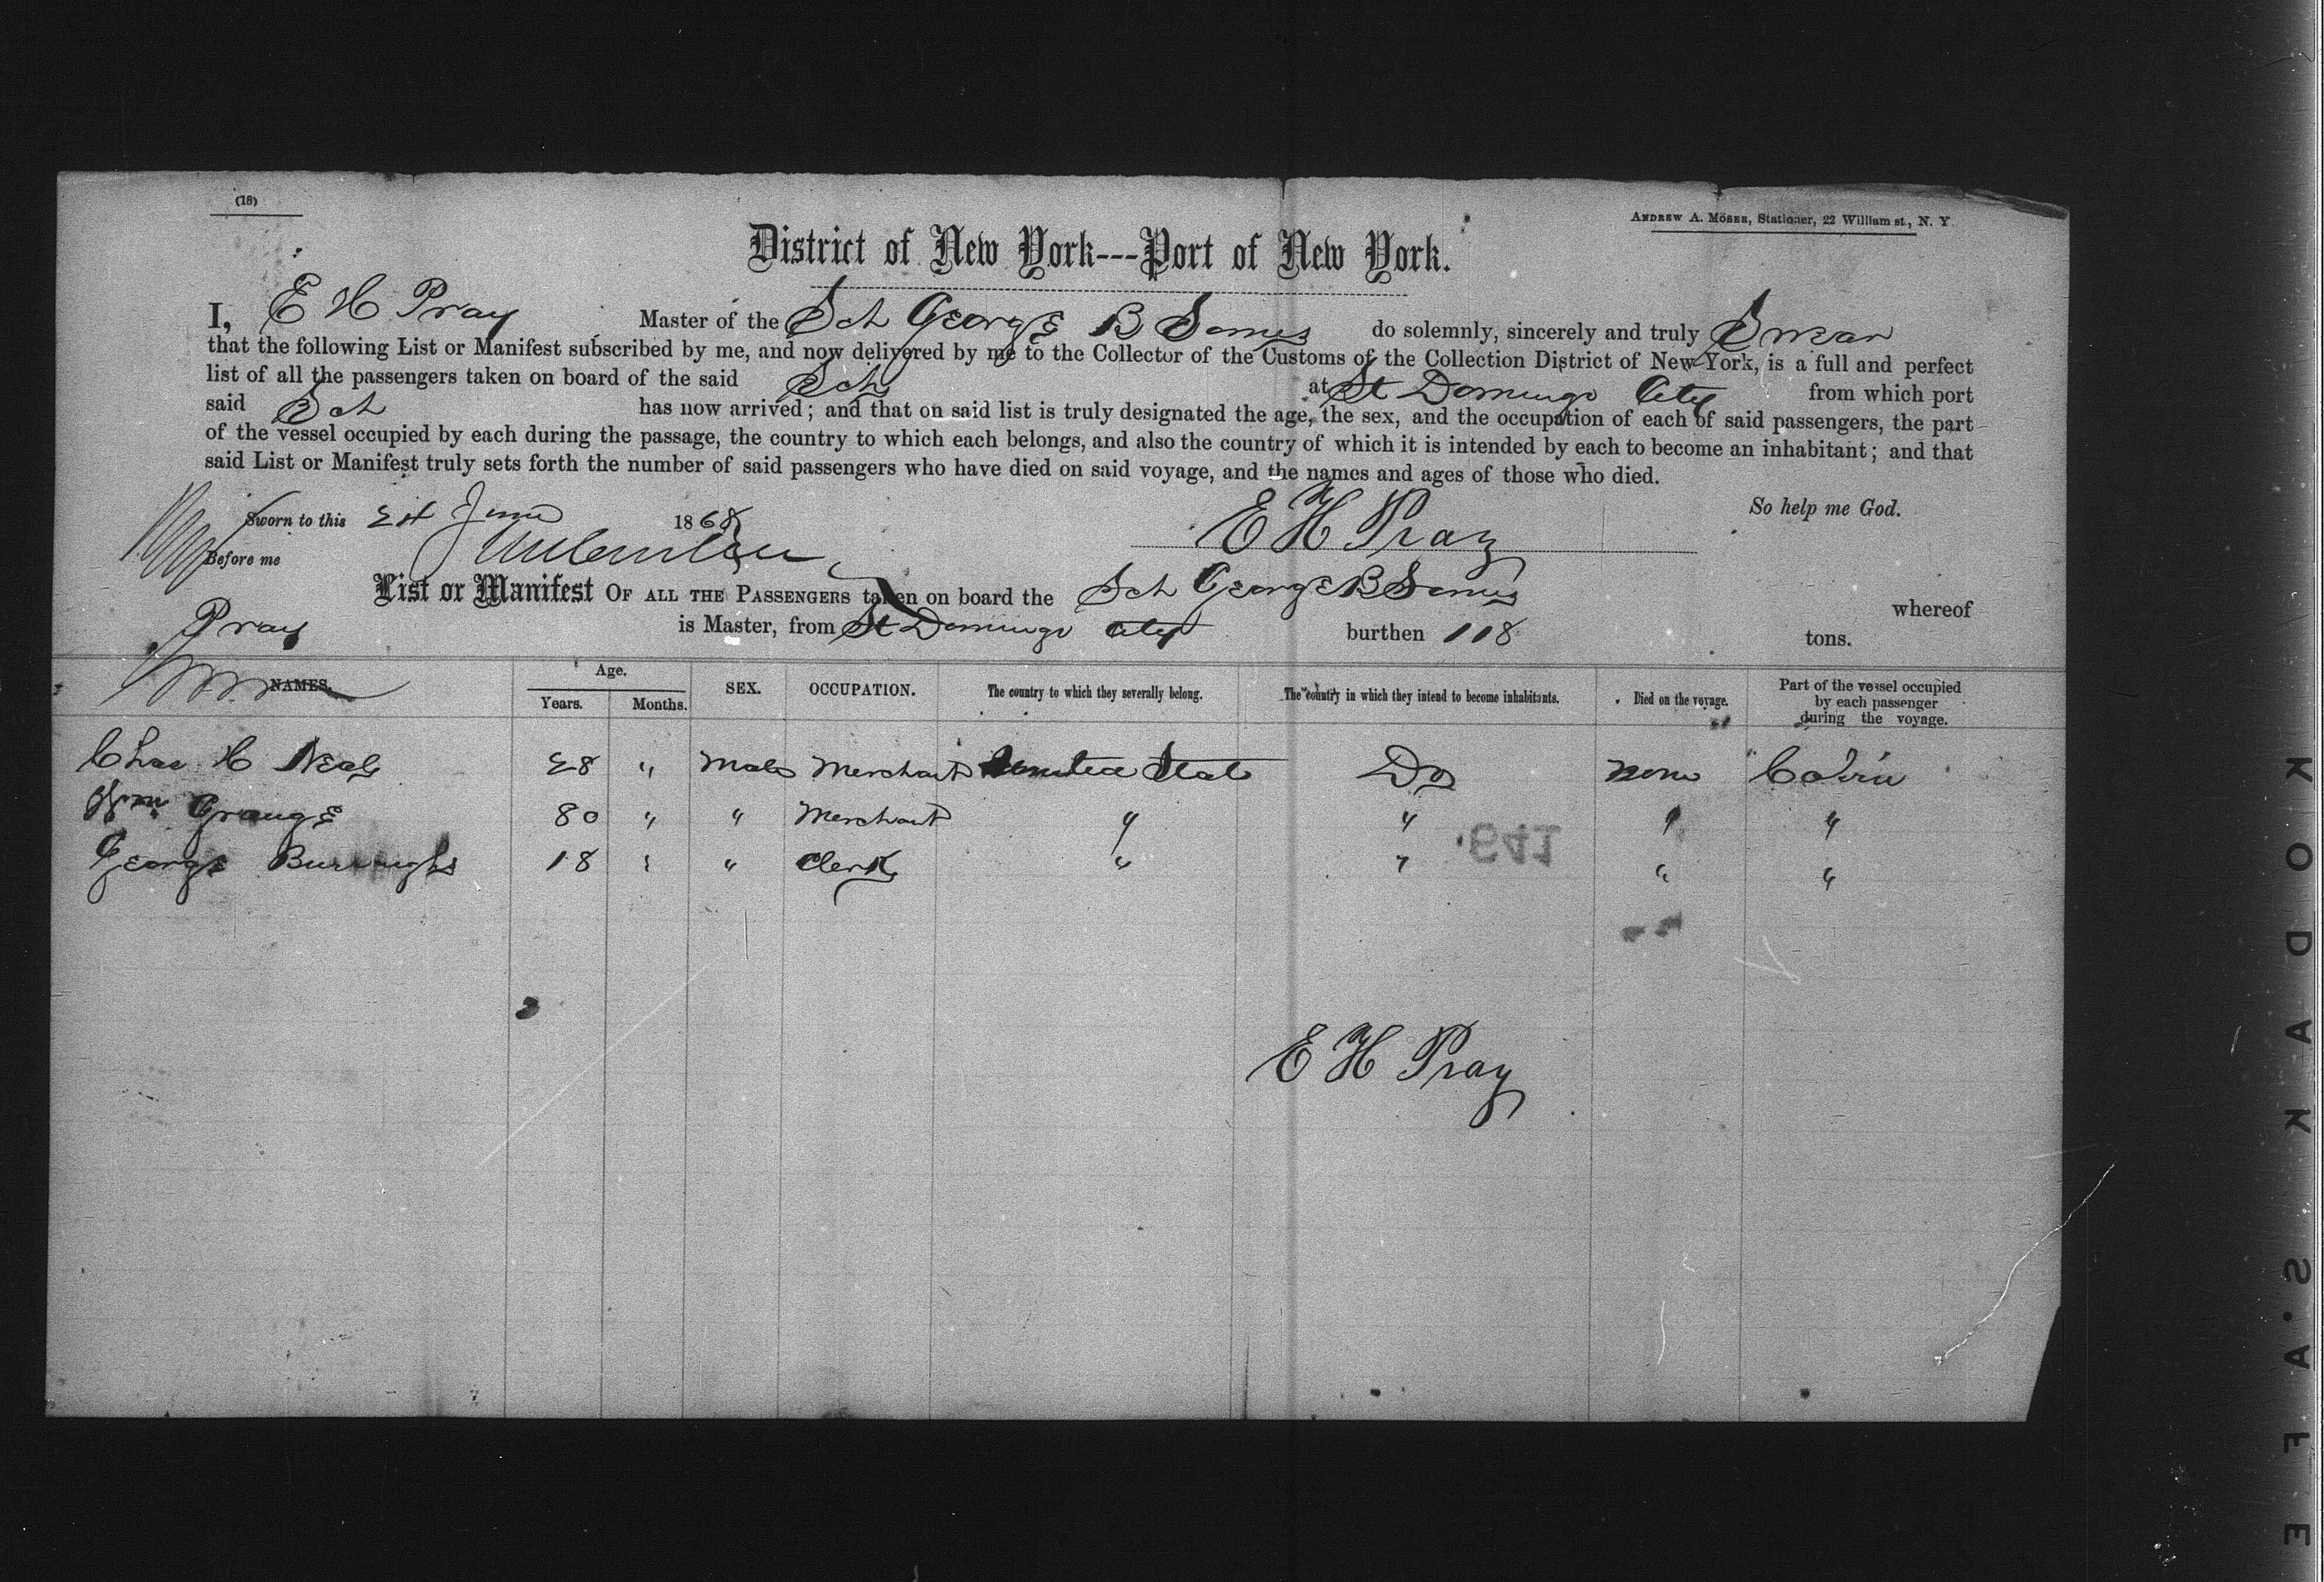 (18)
ANDREW A. MOSER, Stationer, 22 William st., N. Y.
District of New York---Port of New York.
I, E H Pray Master of the Sch George B Somes do solemnly, sincerely and truly Swear
that the following List or Manifest subscribed by me, and now delivered by me to the Collector of the Customs of the Collection District of New York, is a full and perfect
list of all the passengers taken on board of the said Sch at St Domingo City from which port
said Sch has now arrived; and that on said list is truly designated the age, the sex, and the occupation of each of said passengers, the part
of the vessel occupied by each during the passage, the country to which each belongs, and also the country of which it is intended by each to become an inhabitant; and that
said List or Manifest truly sets forth the number of said passengers who have died on said voyage, and the names and ages of those who died.
So help me God.
Sworn to this June 1868 E H Pray
Before me
List or Manifest OF ALL THE PASSENGERS taken on board the Sch George B Somes whereof
Pray is Master, from St Domingo City burthen 118 tons.
NAMES. Age. Years. Months. SEX. OCCUPATION. The country to which they severally belong. The country in which they intend to become inhabitants. Died on the voyage. Part of the vessel occupied by each passenger during the voyage.
Chas H Neale 28 " Male Merchant United State Do none Cabin
Wm Grange 30 " " Merchant " " " "
George Burroughs 18 " " Clerk " " " "
641
E H Pray
KODAK SAFE